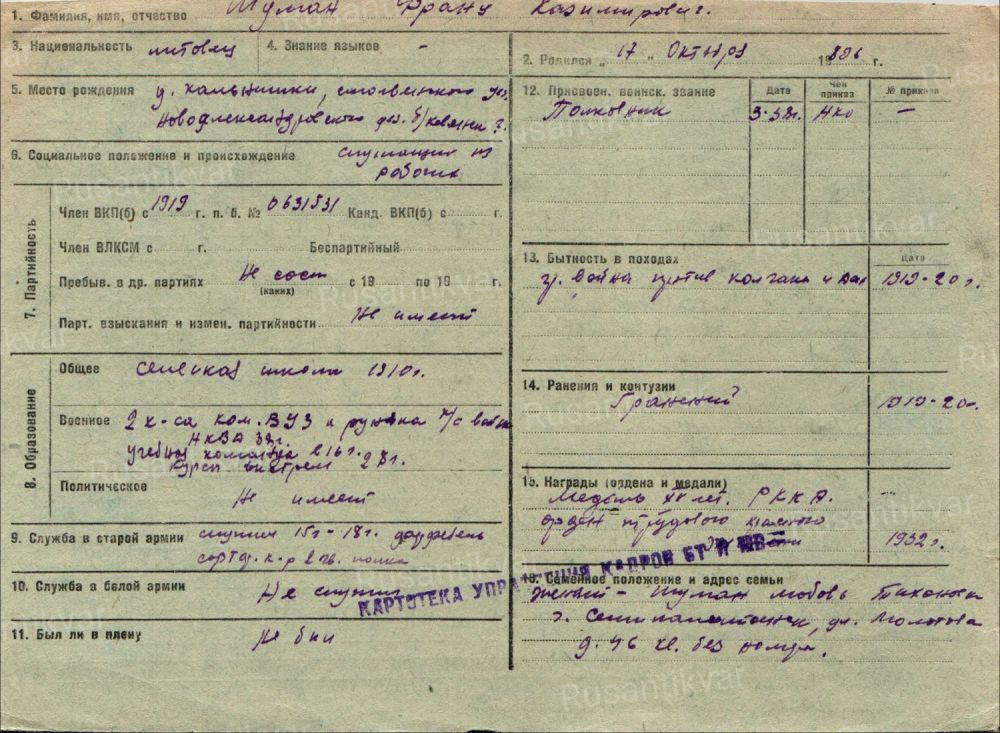 1. Фамилия, имя, отчество Шуман Франц Казимирович.
3. Национальность литовец
4. Знание языков -
2. Родился „ 17 „ Октября 1896 г.
5. Место рождения
Новоалександровского
6. Социальное положение и происхождение служащий из
рабочих
7. Партийность
Член ВКП(б) с 1919 г. п. б. № 0631531 Канд. ВКП(б) с г.
Член ВЛКСМ с г. Беспартийный
Пребыв. в др. партиях Не сост с 19 по 19 г.
(каких)
Парт. взыскания и измен. партийности Не имеет
8. Образование
Общее сельская школа 1910г.
Военное 2 к-са ком. ВУЗ и
НКВД 32г.
учебная команда в 16г.
Курсы выстрел 27г.
Политическое Не имеет
9. Служба в старой армии служил 15г-18г.
10. Служба в белой армии Не служил
11. Был ли в плену не был
12. Присвоен. воинск. звание Дата Чей приказ № приказа
Полковник НКО —
13. Бытность в походах Дата
гр. война против колчака и 1919-20г.
14. Ранения и контузии
Гражданский 1919-20г.
15. Награды (ордена и медали)
Медаль XX лет. РККА. -
орден трудового красного
1932г.
КАРТОТЕКА УПРАВЛЕНИЯ КАДРОВ БТ И МВ
16. Семейное положение и адрес семьи
жена - Шуман Любовь Тихоновна
г. Семипалатинск, ул. Молотова
д. 46 кв. без номера.
Rusantikvar